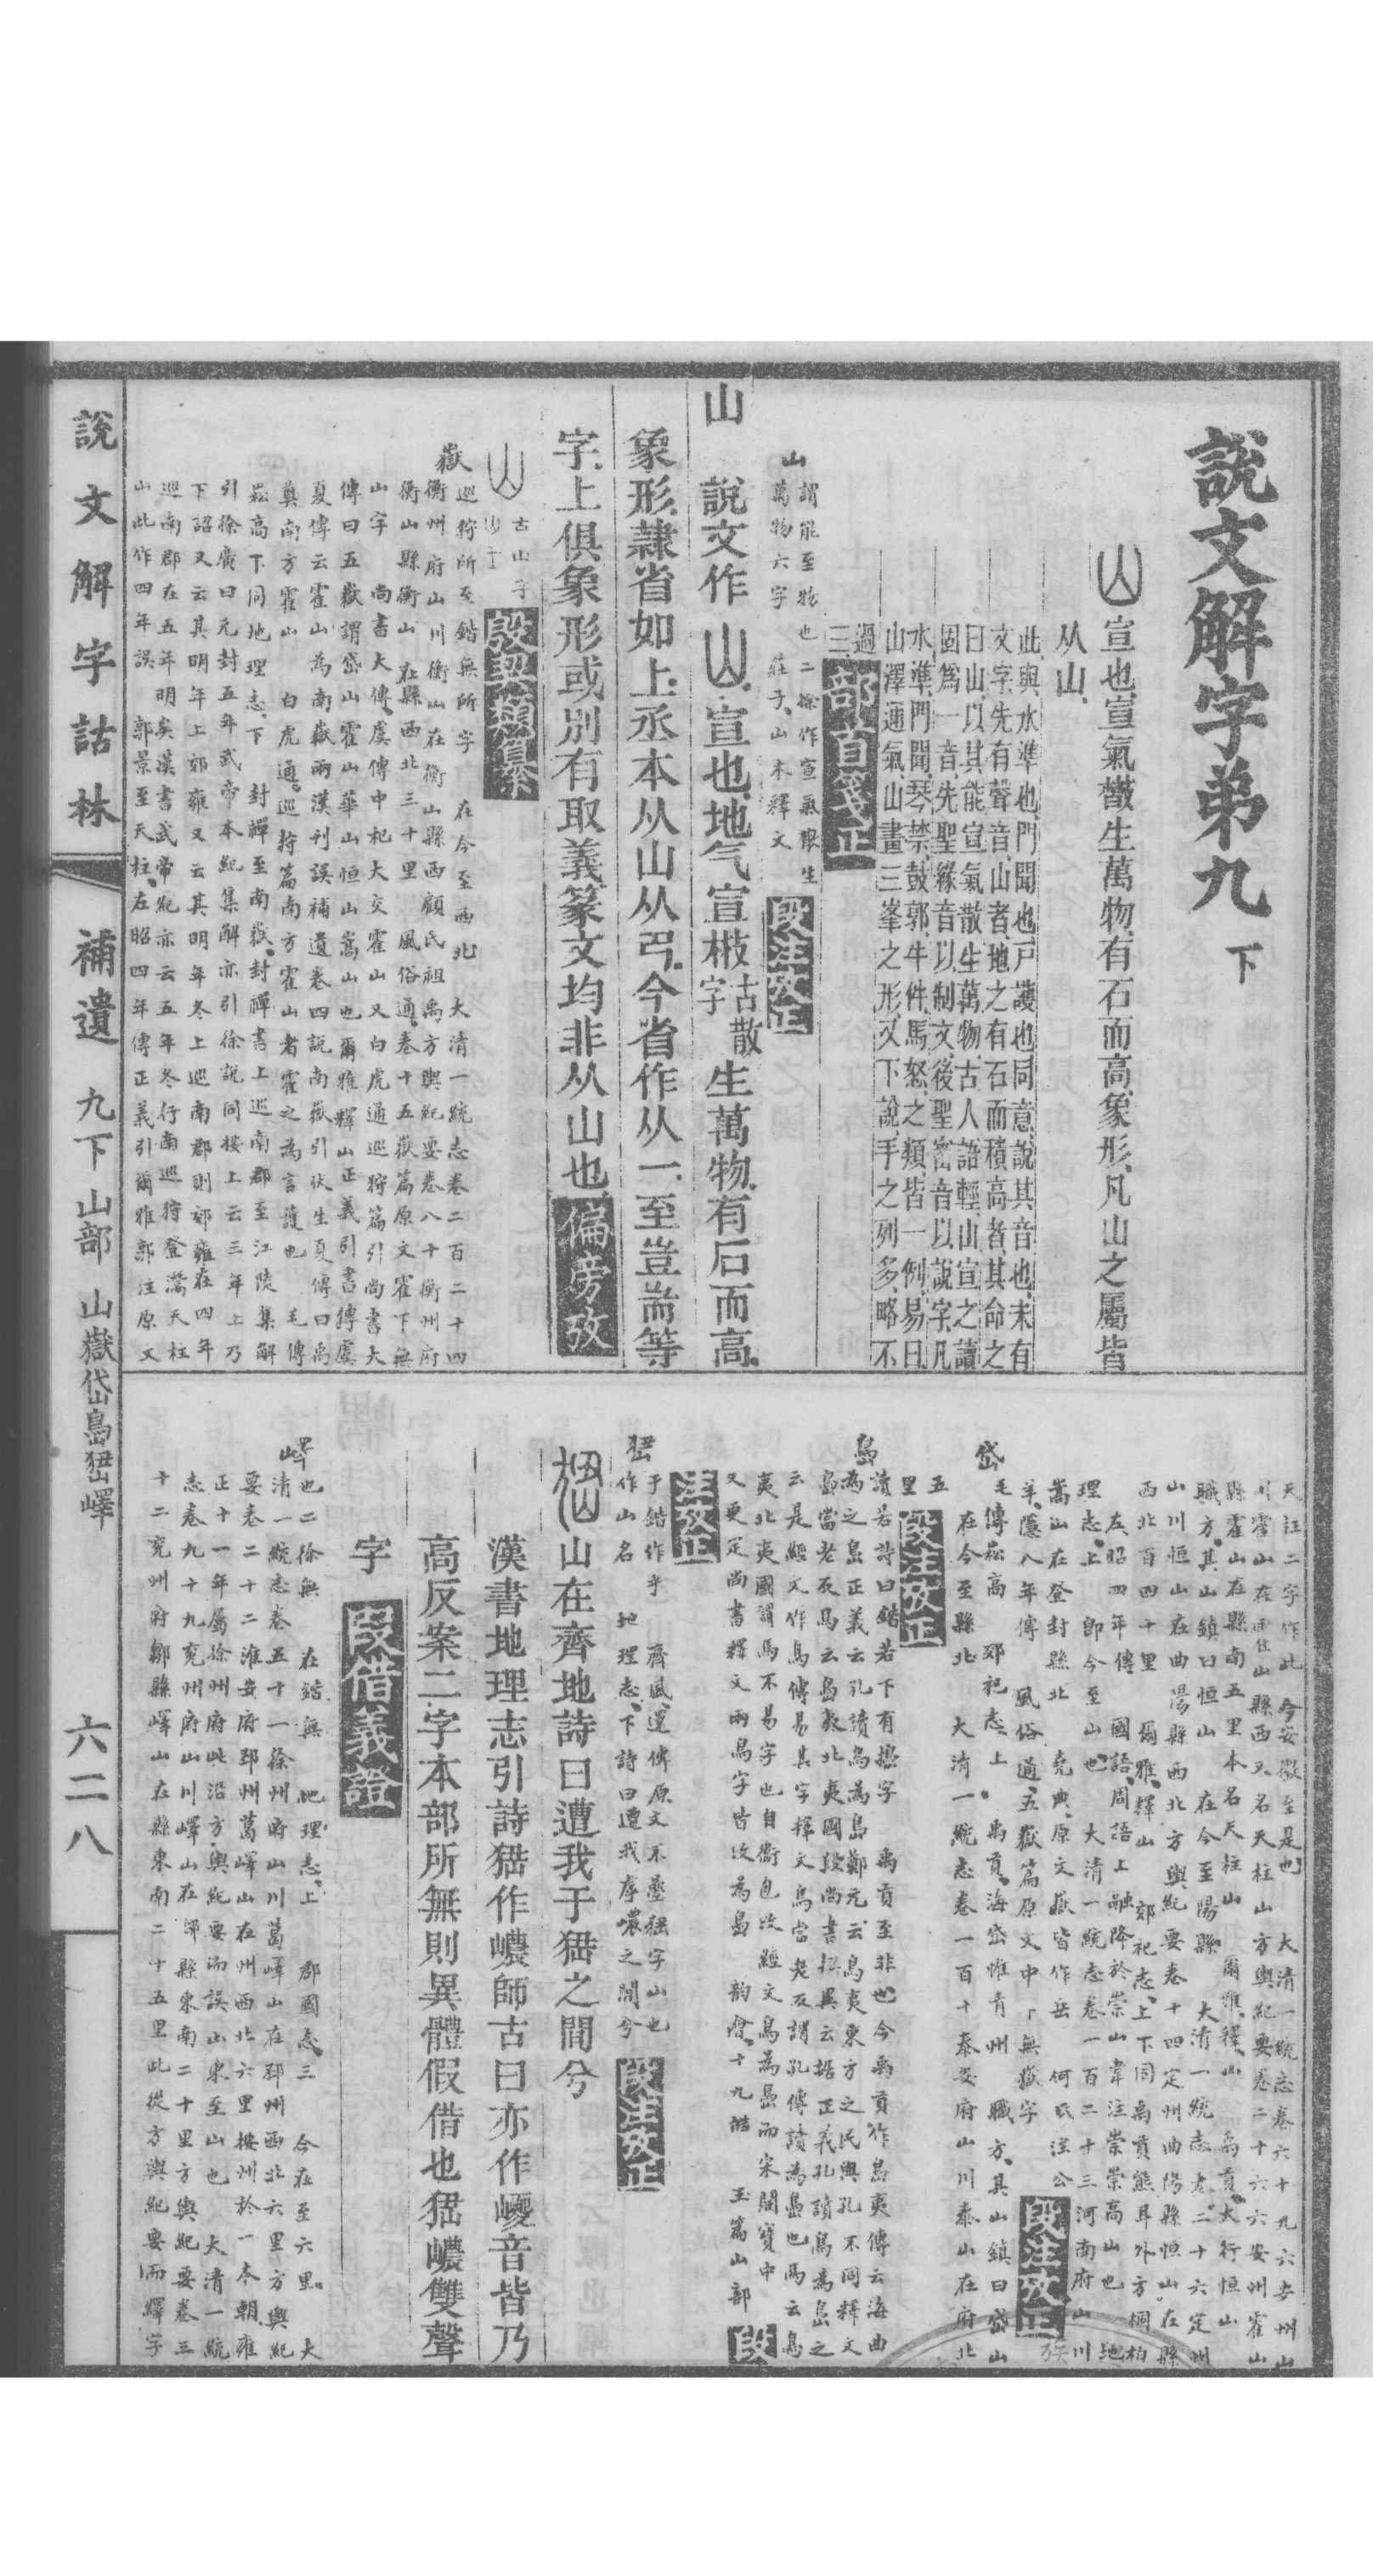 說文解字弟九下
宣也宣氣𢿱生萬物有石而高象形凡山之屬皆
从山
此與水準也門聞也戶護也同意說其音也未有
文字先有聲音山者地之有石而積高者其命之
曰山以其能宣氣散生萬物古人語輕山宣之讀
固爲一音先聖緣音以制文後聖寄音以說字凡
水準門聞琴禁鼓郭牛件馬怒之類皆一例易曰
山澤通氣山畫三峯之形又下說手之列多略不
過三
部首箋正
山 謂能至物也二徐作宣氣散生
萬物六字 莊子山木釋文
段注攷正
山 說文作山宣也地气宣㪔古散字生萬物有石而高
象形隷省如上丞本从山从弓今省作从一至豈耑等
字上俱象形或別有取義篆文均非从山也
偏旁攷
古山字
嶽 巡狩所至鍇無所字 在今至西北 大清一統志卷二百二十四
衡州府山川衡山在衡山縣西顧氏祖禹方輿紀要卷八十衡州府
衡山縣衡山在縣西北三十里 風俗通卷十五嶽篇原文霍下無
山字 尚書大傳虞傳中祀大交霍山又白虎通巡狩篇引尚書大
傳曰五嶽謂岱山霍山華山恒山嵩山也爾雅釋山正義引書傳虞
夏傳云霍山為南嶽兩漢刊誤補遺卷四說南嶽引伏生夏傳曰禹
奠南方霍山 白虎通巡狩篇南方霍山者霍之為言護也 毛傳
崧高下同地理志下 封禪至南嶽封禪書上巡南郡至江陵集解
引徐廣曰元封五年武帝本紀集解亦引徐說同樓上云三年上乃
下詔又云其明年上郊雍又云其明年冬上巡南郡則郊雍在四年
巡南郡在五年明矣漢書武帝紀亦云五年冬行南巡狩登灊天柱
山此作四年誤 郭景至天柱左昭四年傳正義引爾雅郭注原文
天柱二字作此 今安徽至是也 大清一統志卷六十九六安州山
川霍山在霍山縣西又名天柱山方輿紀要卷二十六六安州霍山
縣霍山在縣南五里本名天柱山 爾雅釋山 禹貢太行恒山
職方其山鎮曰恒山 在今至陽縣 大清一統志卷二十六定州
山川恒山在曲陽縣西北方輿紀要卷十四定州曲陽縣恒山在縣
西北百四十里 爾雅釋山 郊祀志上下同禹貢熊耳外方桐柏
左昭四年傳 國語周語上融降於崇山韋注崇崇高山也 地
理志上 卽今至山也 大清一統志卷一百二十三河南府山川
嵩山在登封縣北 堯典原文嶽皆作岳 何氏注公
羊隱八年傳 風俗通五嶽篇原文中下無嶽字
段注攷正
岱 毛傳崧高 郊祀志上 禹貢海岱惟青州 職方其山鎮曰岱山
在今至縣北 大清一統志卷一百十泰安府山川泰山在府北
五里
段注攷正
島 讀若詩曰鍇若下有摭字 禹貢至非也今禹貢作島夷傳云海曲
為之島正義云孔讀鳥為島鄭元云鳥夷東方之民與孔不同釋文
島當老反馬云島夷北夷國段尚書撰異云據正義孔讀鳥為島之
云是經文作鳥傳易其字釋文鳥當老反謂孔傳讀為島也馬云鳥
夷北夷國謂馬不易字也自衞包改經文鳥為島而宋開寶中
又更定尚書釋文兩鳥字皆改為島 韵會十九皓 玉篇山部
段注攷正
峱 于鍇作乎 齊風還傳原文不疊峱字山也
作山名 地理志下詩曰遭我虖嶩之閒兮
段注攷正
山在齊地詩曰遭我于峱之閒兮
漢書地理志引詩峱作嶩師古曰亦作巙音皆乃
高反案二字本部所無則異體假借也峱嶩雙聲
字
段借義證
嶧 也二徐無 在鍇無 地理志上 郡國志三 今在至六里 大
清一統志卷五十一徐州府山川葛嶧山在邳州西北六里方輿紀
要卷二十二淮安府邳州葛嶧山在州西北六里按州於一本朝雍
正十一年屬徐州府此沿方輿紀要而誤山東至山也 大清一統
志卷九十九兗州府山川嶧山在鄒縣東南二十里方輿紀要卷三
十二兗州府鄒縣嶧山在縣東南二十五里此從方輿紀要而嶧字
說文解字詁林 補遺 九下 山部 山嶽岱島峱嶧 六二八